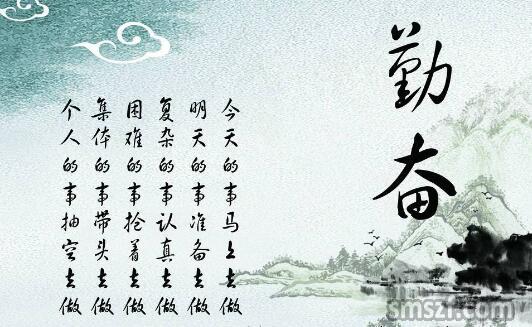 勤奋
今天的事马上去做
明天的事准备去做
复杂的事认真去做
困难的事抢着去做
集体的事带头去做
个人的事抽空去做
smszi.com